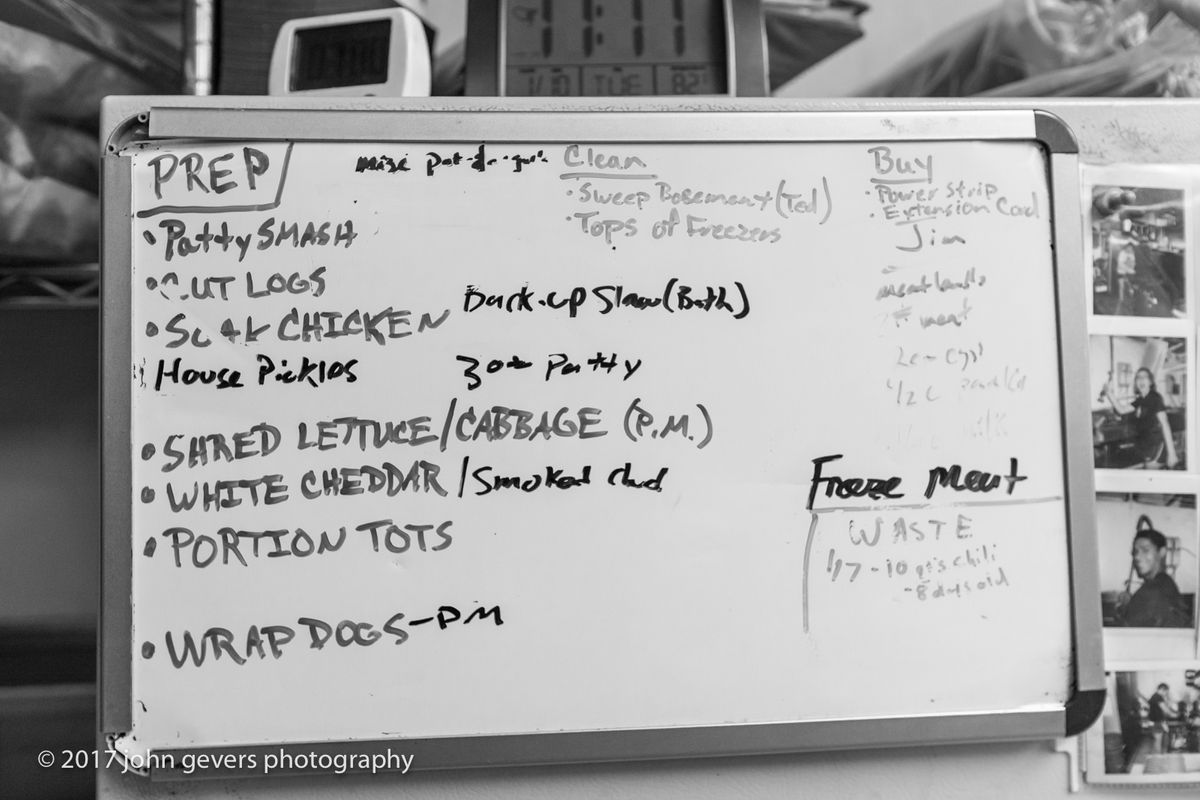 11:11
1/10 TUE 82
PREP
• Patty SMASH
• CUT LOGS
• SOAK CHICKEN
House Pickles
• SHRED LETTUCE/CABBAGE (P.M.)
• WHITE CHEDDAR/Smoked ched
• PORTION TOTS
• WRAP DOGS-PM
Back-up Slaw (Both)
30# Patty
Clean
• Sweep Basement (Ted)
• Tops of Freezers
Buy
• Power Strip
• Extension Cord
Jim
meat
1/2 C
Freeze Meat
WASTE
1/7 - 10 qts chili
- 8 days old
© 2017 john gevers photography